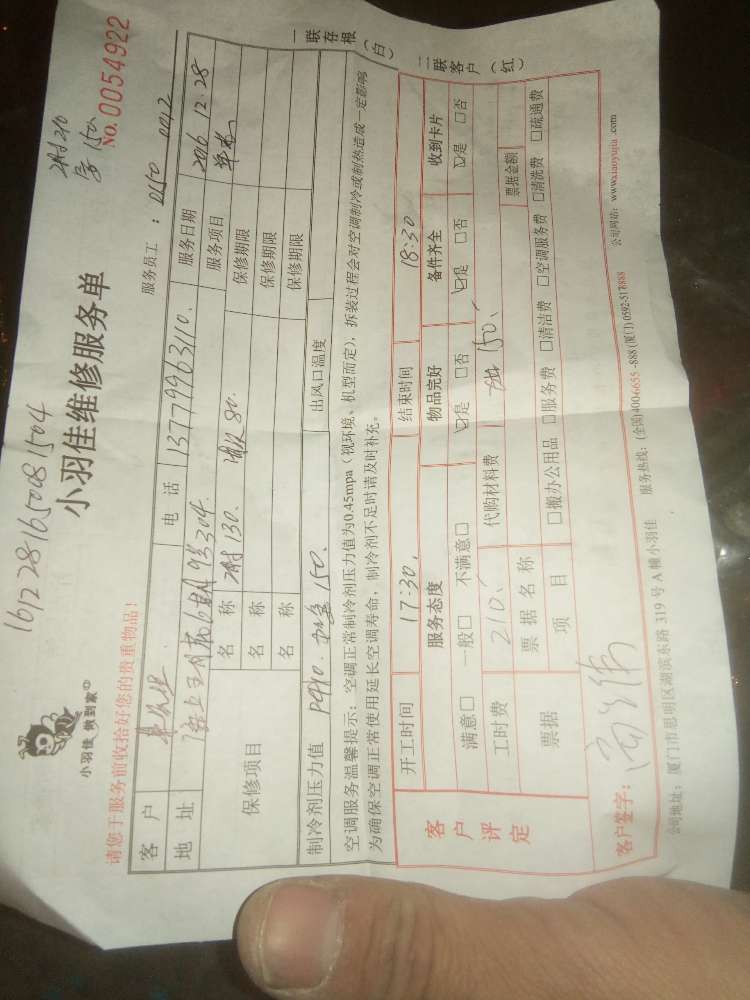 161228165081504
小羽佳维修服务单
No. 0054922
小羽佳 做到家
服务员工: 0150 0042
请您于服务前收拾好您的贵重物品!
客户 电话 13779963110. 服务日期 2016.12.28
地址 服务项目
保修项目 名称 130. 80. 保修期限
名称 保修期限
名称 保修期限
制冷剂压力值 150. 出风口温度
空调服务温馨提示:空调正常制冷剂压力值为0.45mpa(视环境、机型而定),拆装过程会对空调制冷或制热造成一定影响
为确保空调正常使用延长空调寿命,制冷剂不足时请及时补充。
一联存根(白)
二联客户(红)
客户评定
开工时间 17:30. 结束时间 18:30
服务态度 物品完好 备件齐全 收到卡片
满意□ 一般□ 不满意□ ☑是 □否 ☑是 □否 ☑是 □否
工时费 210. 代购材料费 150.
票据 票据名称 票据金额
项目 □搬办公用品 □服务费 □清洁费 □空调服务费 □清洗费 □疏通费
客户签字:
公司地址:厦门市思明区湖滨东路 319 号 A 幢小羽佳 服务热线:(全国)4006655-888(厦门)0592-5178888 公司网站:www.xiaoyujia.com